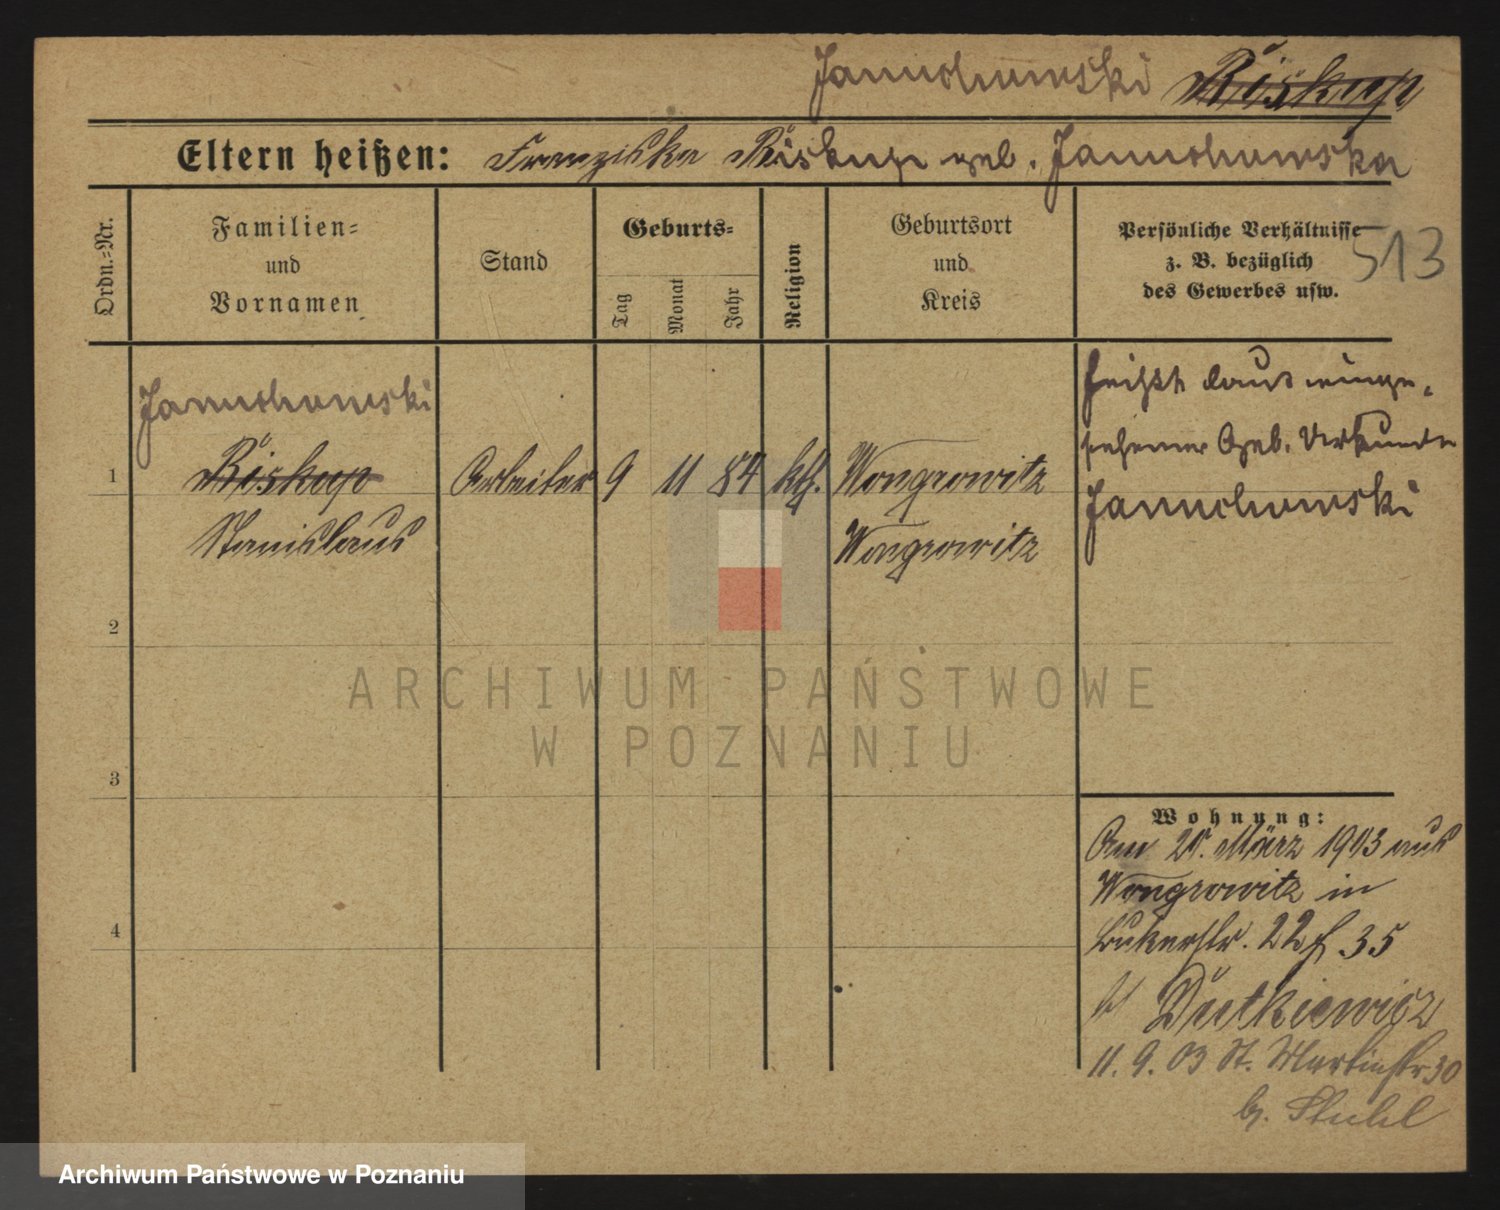 Januchowski Biskup
Eltern heißen: Franziska Biskup geb. Januchowska
Ordn.=Nr.
Familien=
und
Vornamen
Stand
Geburts=
Tag
Monat
Jahr
Religion
Geburtsort
und
Kreis
Persönliche Verhältnisse
z. B. bezüglich
des Gewerbes usw.
513
Januchowski
1 Biskup Arbeiter 9 11 84 kth. Wongrowitz
Stanislaus Wongrowitz
heißt laut einge-
sehener Geb. Urkunde
Januchowski
2
3
4
Wohnung:
Am 20. März 1903 aus
Wongrowitz in
Bukerstr. 22 f. 35
bei Dutkiewicz
11. 9. 03 St. Martinstr 30
b.
ARCHIWUM PAŃSTWOWE
W POZNANIU
Archiwum Państwowe w Poznaniu